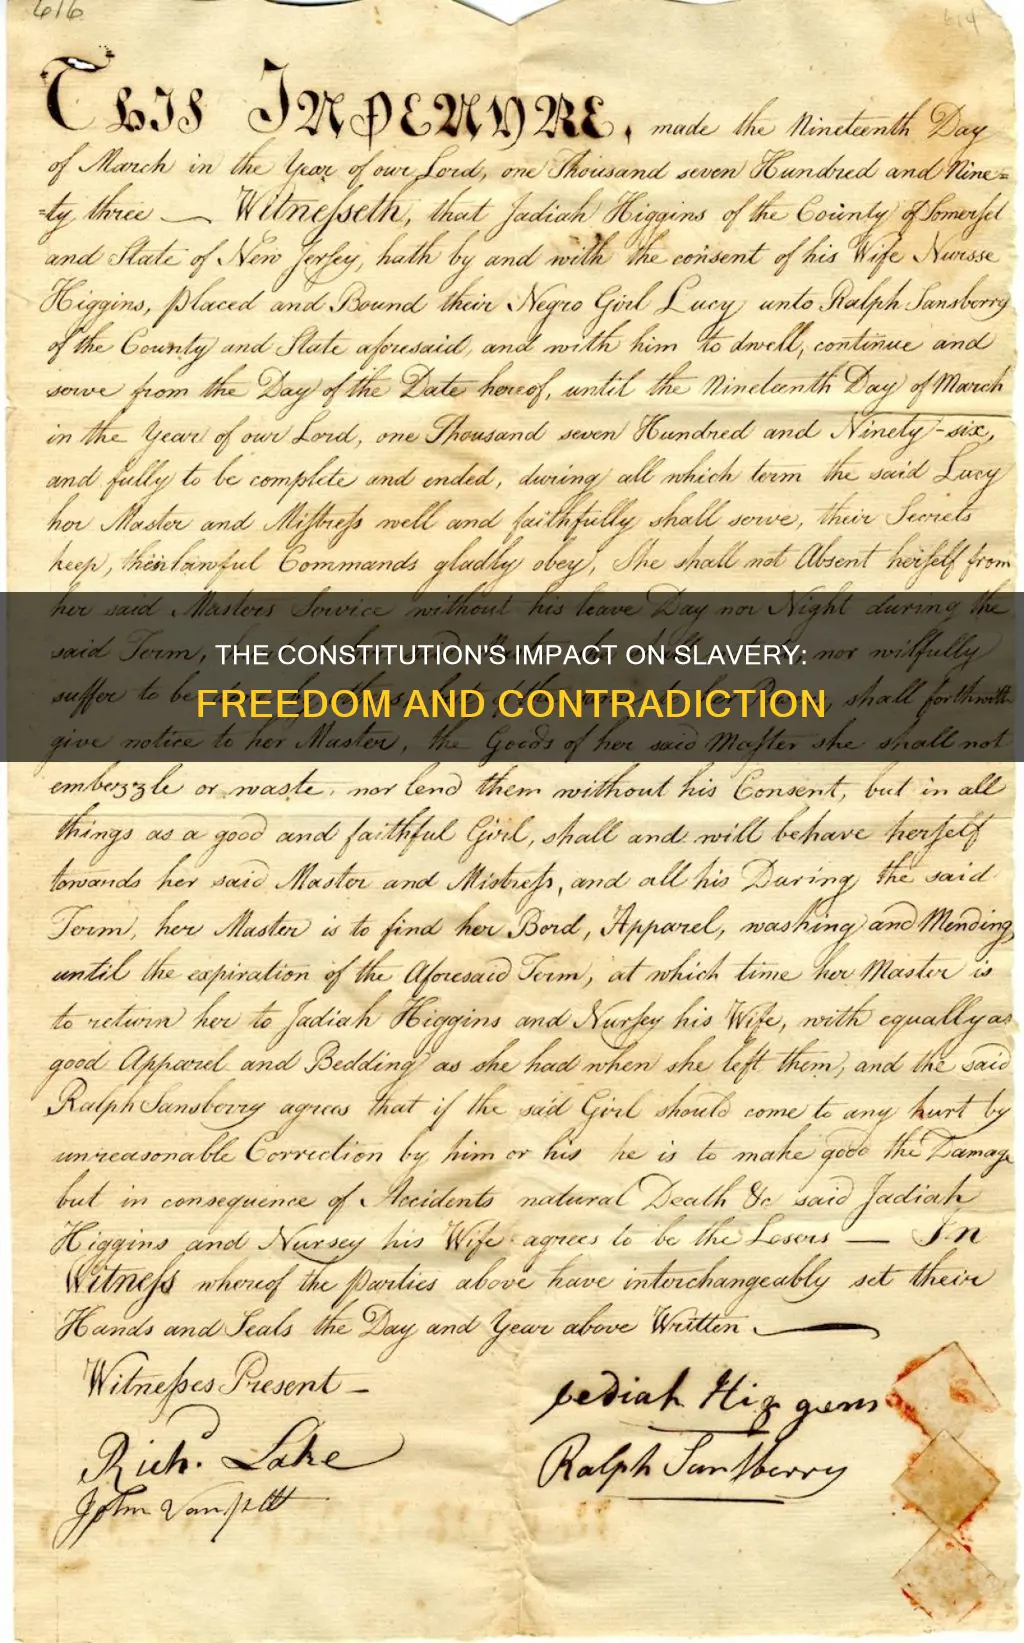 616
614
This Indenture, made the Nineteenth Day
of March in the Year of our Lord, one Thousand seven Hundred and Nine=
=ty three — Witnesseth, that Jadiah Higgins of the County of Somerset
and State of New Jersey, hath by and with the consent of his Wife Nursse
Higgins, placed and Bound their Negro Girl Lucy unto Ralph Sansberry
of the County and State aforesaid, and with him to dwell, continue and
serve from the Day of the Date hereof, until the Nineteenth Day of March
in the Year of our Lord, one Thousand seven Hundred and Ninety-six,
and fully to be complete and ended, during all which term the said Lucy
her Master and Mistress well and faithfully shall serve, their Secrets
keep, their lawful Commands gladly obey, She shall not Absent herself from
her said Masters Service without his leave Day nor Night during the
said Term, nor wilfully
THE CONSTITUTION'S IMPACT ON SLAVERY:
suffer to be shall forthwith
FREEDOM AND CONTRADICTION
give notice to her Master, the Goods of her said Master she shall not
embezzle or waste, nor lend them without his Consent, but in all
things as a good and faithful Girl, shall and will behave herself
towards her said Master and Mistress, and all his During the said
Term, her Master is to find her Bord, Apparel, washing and Mending
until the expiration of the Aforesaid Term, at which time her Master is
to return her to Jadiah Higgins and Nursey his Wife, with equally as
good Apparel and Bedding as she had when she left them, and the said
Ralph Sansberry agrees that if the said Girl should come to any hurt by
unreasonable Correction by him or his he is to make good the Damage
but in consequence of Accidents natural Death &c said Jadiah
Higgins and Nursey his Wife agrees to be the Losers — In
Witness whereof the Parties above have interchangeably set their
Hands and Seals the Day and Year above Written
Witnesses Present —
Jediah Higgens
Richd. Lake
Ralph Sansberry
John